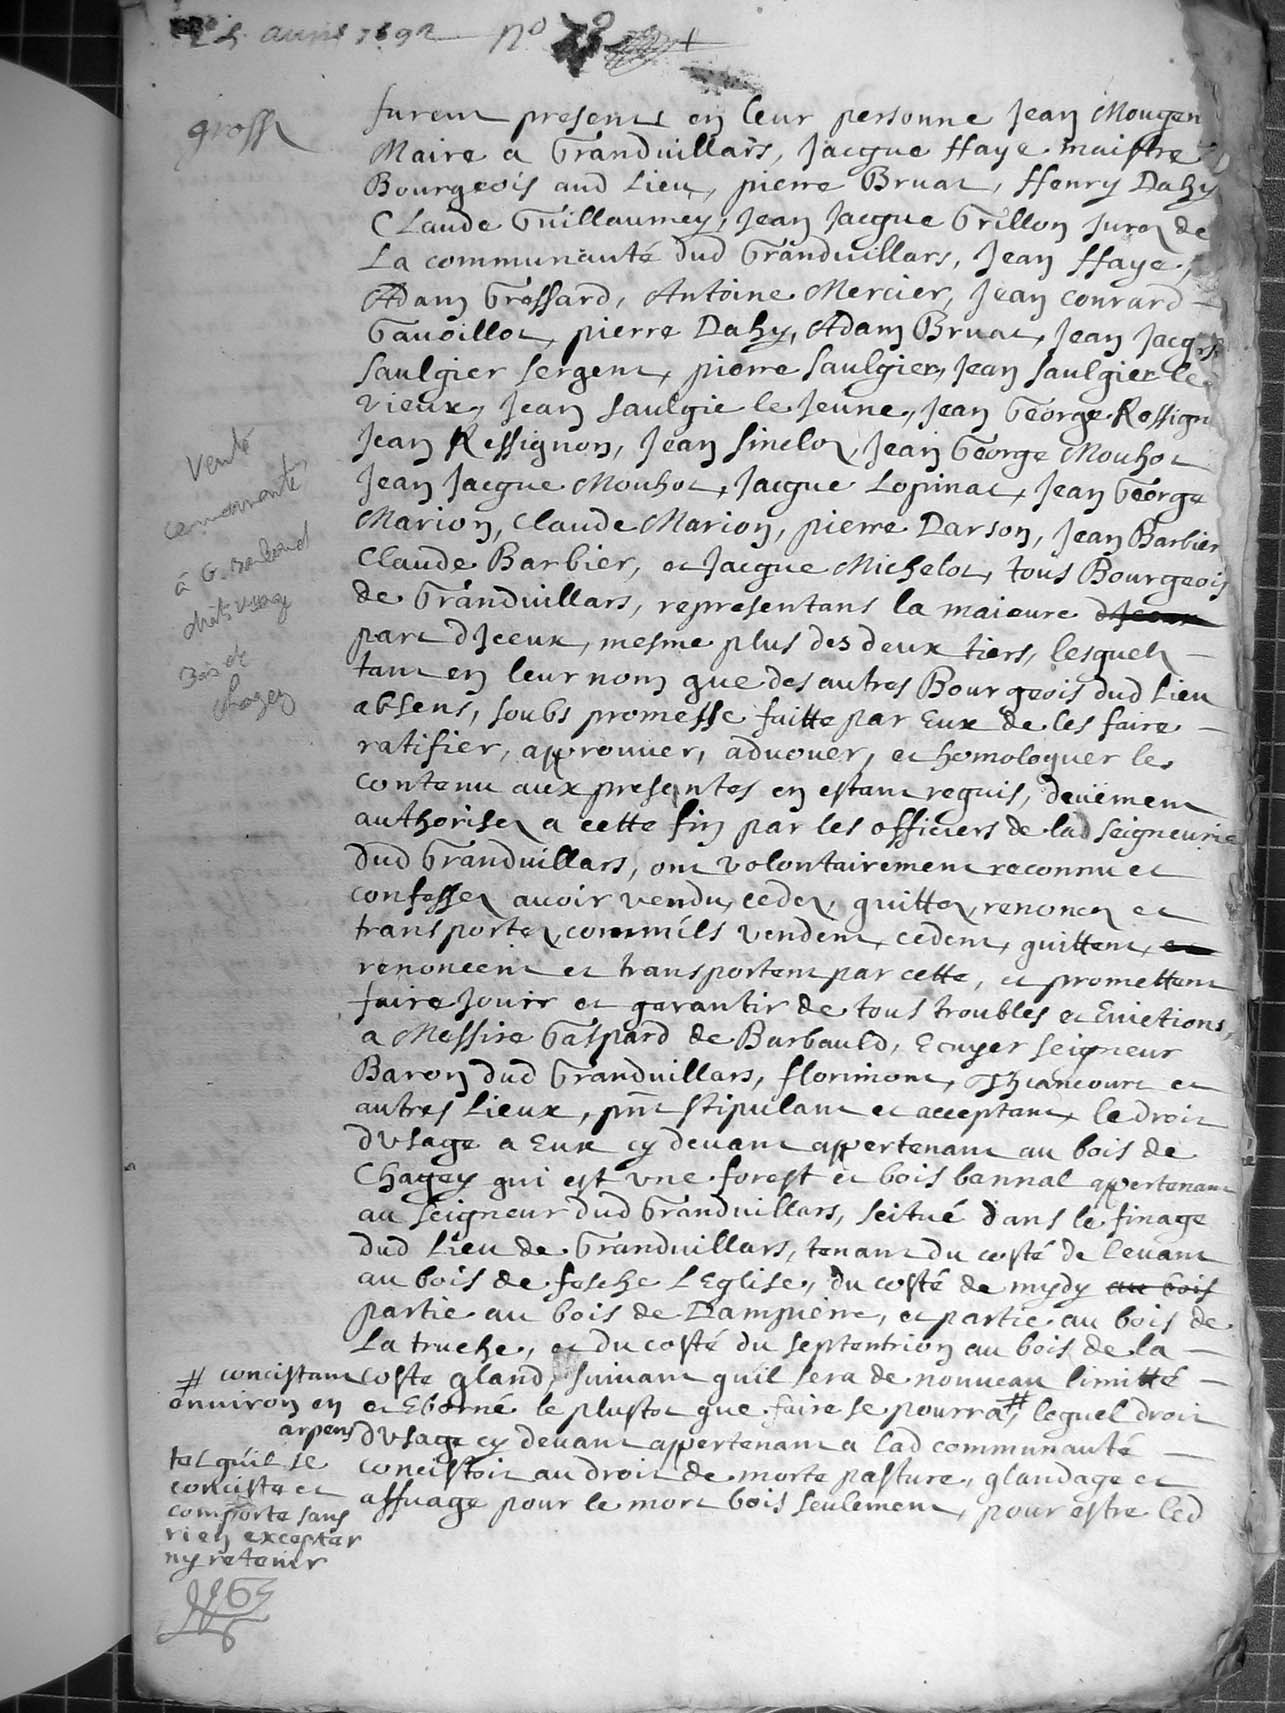 avril 1692 n°
grosse
furent presents en leur personne Jean Mougen
Maire a Granduillars, Jacque ffaye maistre
Bourgeois aud Lieu, pierre Bruat, ffenry Dahy
Claude Guillaumey, Jean Jacque Grillon Jurez de
La communauté dud Granduillars, Jean ffaye,
Adam Grossard, Antoine Mercier, Jean Conrard
Gauoillot, pierre Dahy, Adam Bruat, Jean Jacqs
Saulgier sergent, pierre Saulgier, Jean Saulgier le
vieux, Jean Saulgie le Jeune, Jean George Rossign
Jean Rossignon, Jean Sineloz, Jean George Mouhot
Jean Jacque Mouhot, Jacque Lopinat, Jean George
Marion, Claude Marion, pierre Darson, Jean Barbier
Claude Barbier, et Jacque Michelot, tous Bourgeois
de Granduillars, representans la maieure
part dJceux, mesme plus des deux tiers, lesquelz
tant en leur nom que des autres Bourgeois dud Lieu
absens, soubs promesse faitte par Eux de les faire
ratifier, aprouuer, aduouer, et homologuer le
contenu aux presentes en estant requis, deuëment
authorisez a cette fin par les officiers de lad Seigneurie
dud Granduillars, ont volontairement reconnu et
confessez auoir vendu, cedez, quittez, renoncez et
transportez, comm'ils vendent, cedent, quittent, et
renoncent et transportent par cette, et promettent
faire Jouir et garantir de tous troubles et Euictions,
a Messire Gaspard de Barbauld, Ecuyer Seigneur
Baron dud Granduillars, florimont, Thiancourt et
autres Lieux, pñt stipulant et acceptant, le droit
dvsage a Eux cy deuant appertenant au bois de
Chagey qui est vne forest et bois bannal appertenant
au Seigneur dud Granduillars, scitué dans le finage
dud Lieu de Granduillars, tenant du costé de leuant
au bois de fesche LEglise, du costé de mydy au bois
partie au bois de Dampierre, et partie au bois de
La truche, et du costé du septentrion au bois de la
coste gland, suiuant quil sera de nouueau limitté
et Eborné le plustot que faire se pourra #, lequel droit
dvsage cy deuant appertenant a lad communauté
concistoit au droit de morte pasture, glandage et
affuage pour le mort bois seulement, pour estre led
Vente
communauté
à G. Barbaud
droits usage
Bois de
Chagey
# concistant
enuiron en
arpens
tel qu'il se
conciste et
comporte sans
rien excepter
ny retenir